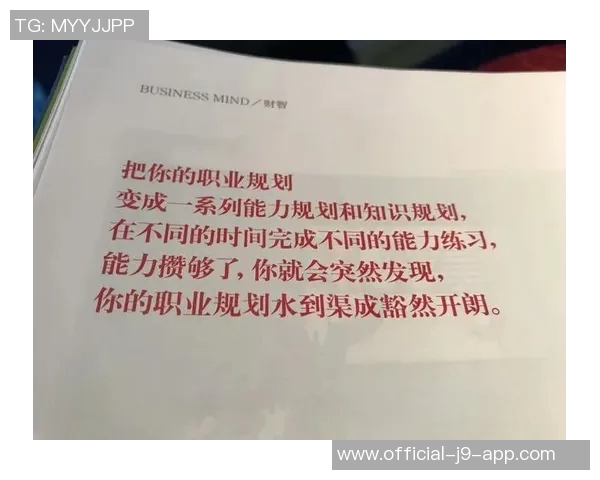 TG: MYYJJPP
BUSINESS MIND／财智
把你的职业规划
变成一系列能力规划和知识规划，
在不同的时间完成不同的能力练习，
能力攒够了，你就会突然发现，
你的职业规划水到渠成豁然开朗。
www.official-j9-app.com